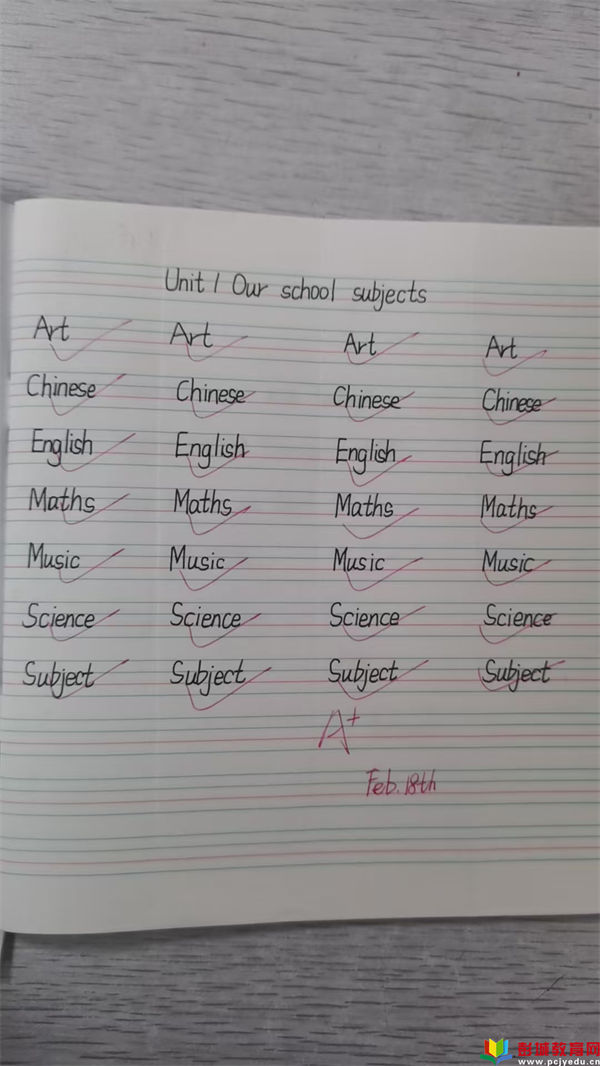 Unit 1 Our school subjects
Art Art Art Art
Chinese Chinese Chinese Chinese
English English English English
Maths Maths Maths Maths
Music Music Music Music
Science Science Science Science
Subject Subject Subject Subject
A+
Feb. 18th
彭城教育网
www.pcjyedu.cn